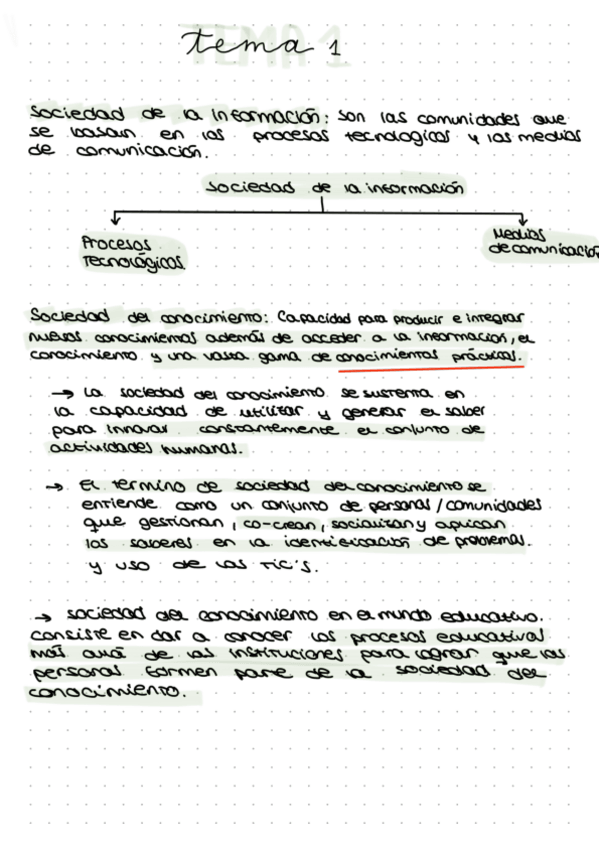 tema 1
Sociedad de la información: son las comunidades que
se basan en los procesos tecnologicos y los medios
de comunicación.
sociedad de la información
Procesos
Tecnológicos.
Medios
de comunicación
Sociedad del conocimiento: Capacidad para producir e integrar
nuevos conocimientos además de acceder a la información, el
conocimiento y una vasta gama de conocimientos prácticos.
→ La sociedad del conocimiento se sustenta en
la capacidad de utilizar y generar el saber
para innovar constantemente el conjunto de
actividades humanas.
→ El termino de sociedad del conocimiento se
entiende como un conjunto de personas/comunidades
que gestionan, co-crean, socializan y aplican
los saberes en la identificación de problemas.
y uso de las TIC's.
→ sociedad del conocimiento en el mundo educativo.
consiste en dar a conocer los procesos educativos
más allá de las instituciones para lograr que las
personas formen parte de la sociedad del
conocimiento.